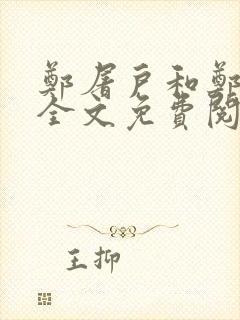 鄭屠戶和鄭
全文免費閱
王抑